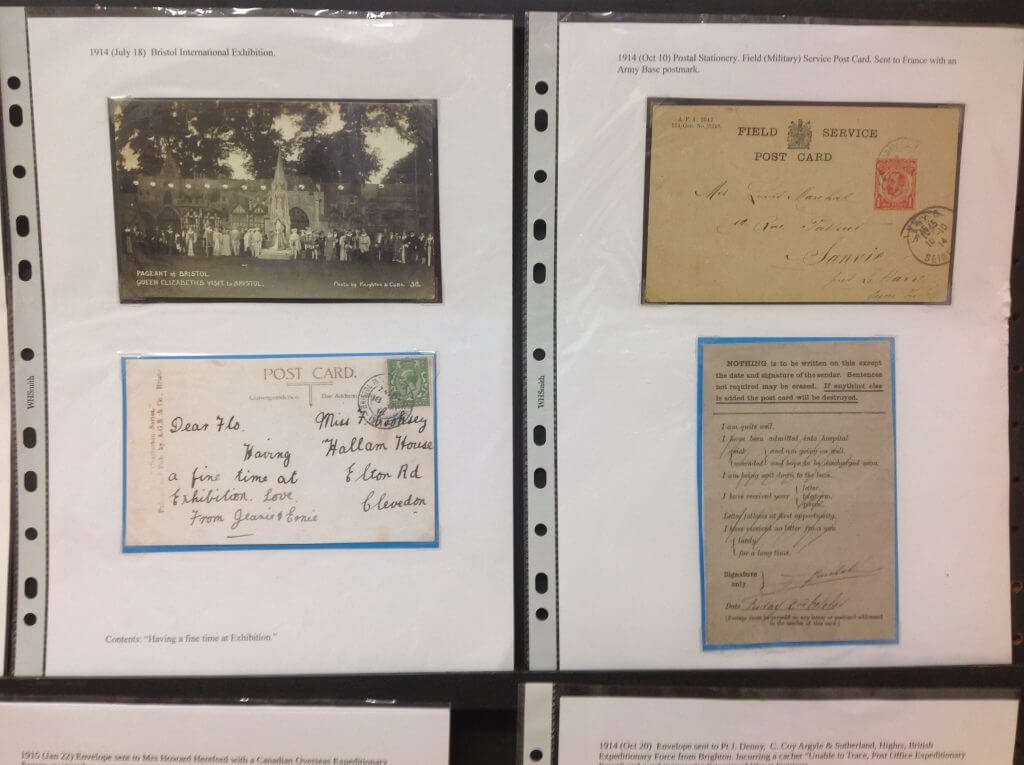 1914 (July 18) Bristol International Exhibition.
PAGEANT of BRISTOL
QUEEN ELIZABETHS VISIT to BRISTOL.
Photo by Keighton & Cubn. 38.
POST CARD.
Correspondence
The Address
Dear Flo.
Having
a fine time at
Exhibition. Love.
From Jeanie & Ernie
Miss F.
"Hallam House
Elton Rd
Clevedon
Contents: "Having a fine time at Exhibition."
WHSmith
1914 (Oct 10) Postal Stationery. Field (Military) Service Post Card. Sent to France with an
Army Base postmark.
A.F.A. 2042
FIELD SERVICE
POST CARD
Louis Marshal
Sanvic
10-10
14
NOTHING is to be written on this except
the date and signature of the sender. Sentences
not required may be erased. If anything else
is added the post card will be destroyed.
I am quite well.
I have been admitted into hospital
sick and am going on well.
wounded and hope to be discharged soon.
I am being sent down to the base.
I have received your letter.
telegram.
parcel.
Letter follows at first opportunity.
I have received no letter from you
lately.
for a long time.
Signature
only.
Date
[Postage must be prepaid on any letter or postcard addressed
to the sender of this card.]
WHSmith
1915 (Jan 22) Envelope sent to Mrs Howard Hereford with a Canadian Overseas Expeditionary
1914 (Oct 20) Envelope sent to Pt J. Denny, C. Coy Argyle & Sutherland, Highrs, British
Expeditionary Force from Brighton. Incurring a cachet "Unable to Trace, Post Office Expeditionary